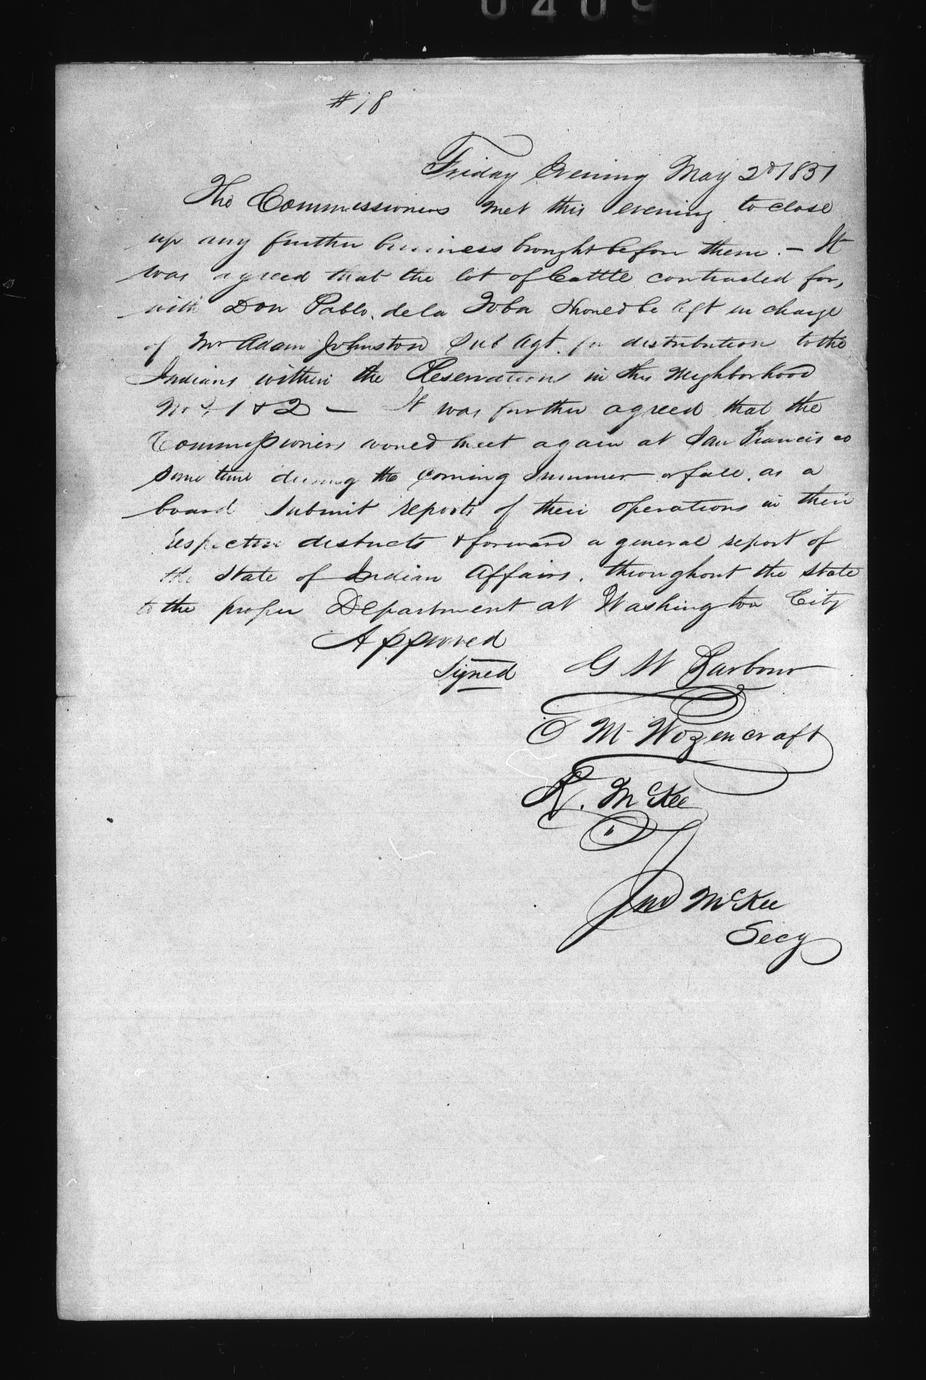 0409
#18
Friday Evening May 2d 1851
The Commissioners met this evening to close
up any further business brought before them. — It
was agreed that the lot of Cattle contracted for,
with Don Pablo. de la Toba should be left in charge
of Mr Adam Johnston Sub Agt. for distribution to the
Indians within the Reservations in this Neighborhood
Nos. 1 & 2 — It was further agreed that the
Commissioners would meet again at San Francisco
some time during the coming Summer or fall. as a
board submit reports of their operations in their
respective districts & forward a general report of
the State of Indian Affairs. throughout the state
to the proper Department at Washington City
Approved
Signed G W Barbour
O M Wozencraft
R. McKee
Jno McKee
Secy